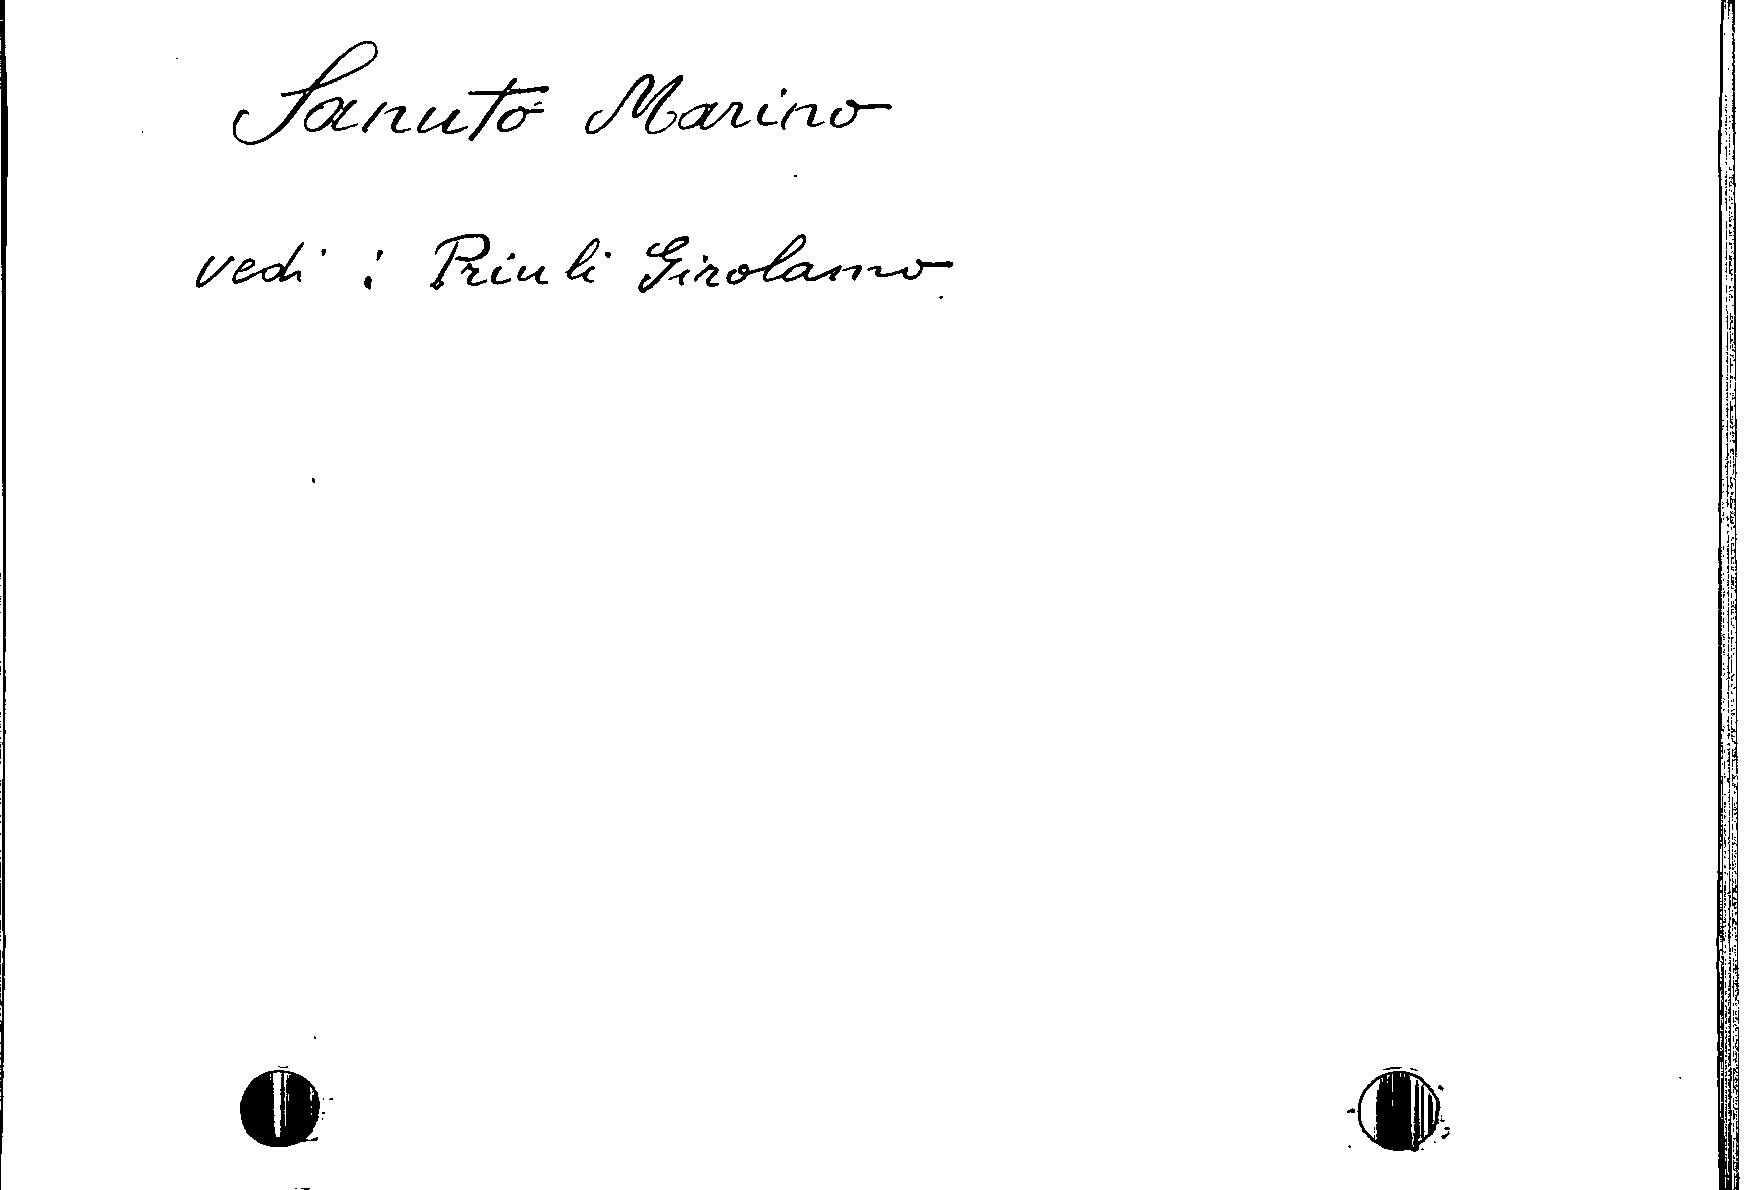 Sanuto Marino
vedi : Priuli Girolamo